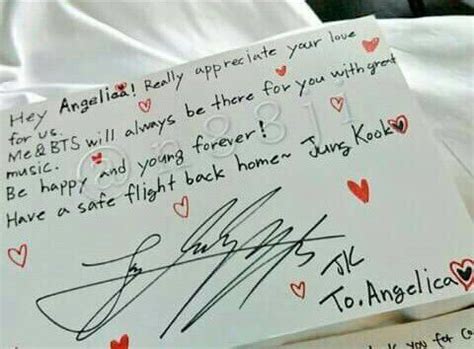 Hey Angelica! Really appreciate your love
for us.
Me&BTS will always be there for you with great
music.
Be happy and young forever!
Have a safe flight back home~ Jung Kook
JK
To. Angelica
you for